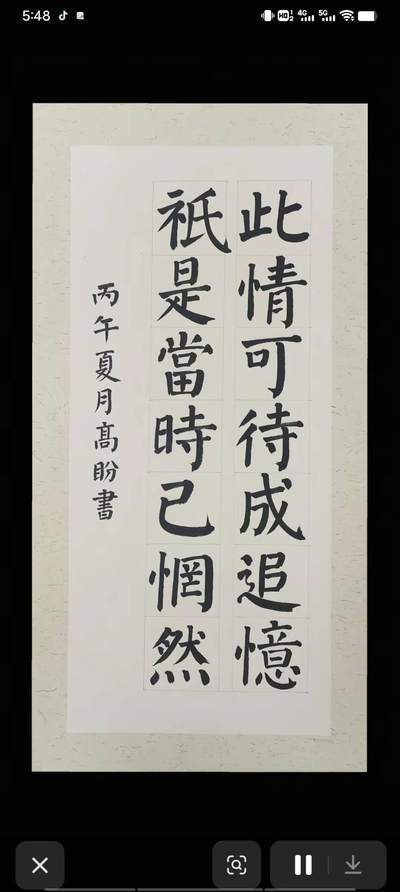 5:48
HD 1 2 4G 5G
此情可待成追憶
祇是當時已惘然
丙午夏月高盼書